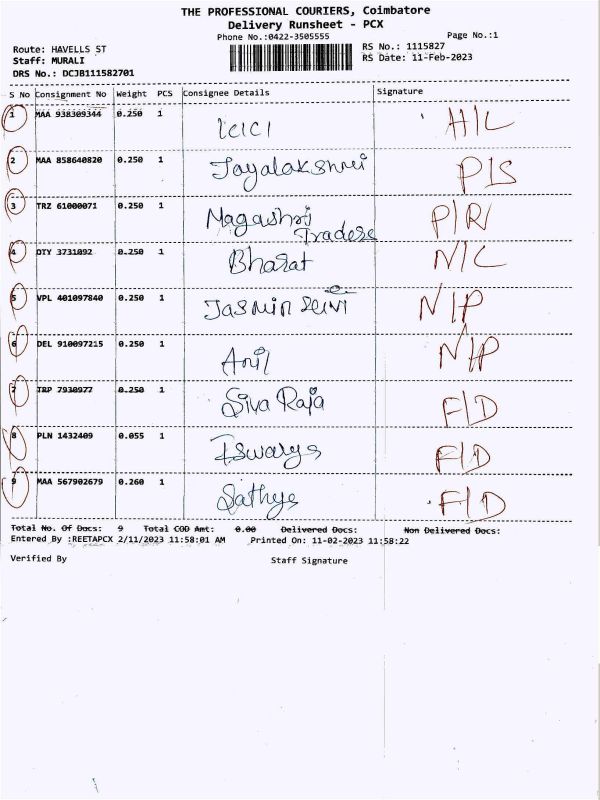 THE PROFESSIONAL COURIERS, Coimbatore
Delivery Runsheet - PCX
Phone No.:0422-3505555
Page No.:1
Route: HAVELLS ST
RS No.: 1115827
Staff: MURALI
RS Date: 11-Feb-2023
DRS No.: DCJB111582701
S No Consignment No Weight PCS Consignee Details Signature
1 MAA 938309344 0.250 1 ICICI H/L
2 MAA 858640820 0.250 1 Jayalakshmi P/S
3 TRZ 61000071 0.250 1 Nagashri Traders P/R
4 OTY 3731092 0.250 1 Bharat N/C
5 VPL 401097840 0.250 1 Jasmin N/P
6 DEL 910097215 0.250 1 Anil N/P
7 TRP 7930977 0.250 1 Siva Raja F/D
8 PLN 1432409 0.055 1 Iswarya F/D
9 MAA 567902679 0.260 1 Sathya F/D
Total No. Of Docs: 9 Total COD Amt: 0.00 Delivered Docs: Non Delivered Docs:
Entered By :REETAPCX 2/11/2023 11:58:01 AM Printed On: 11-02-2023 11:58:22
Verified By Staff Signature